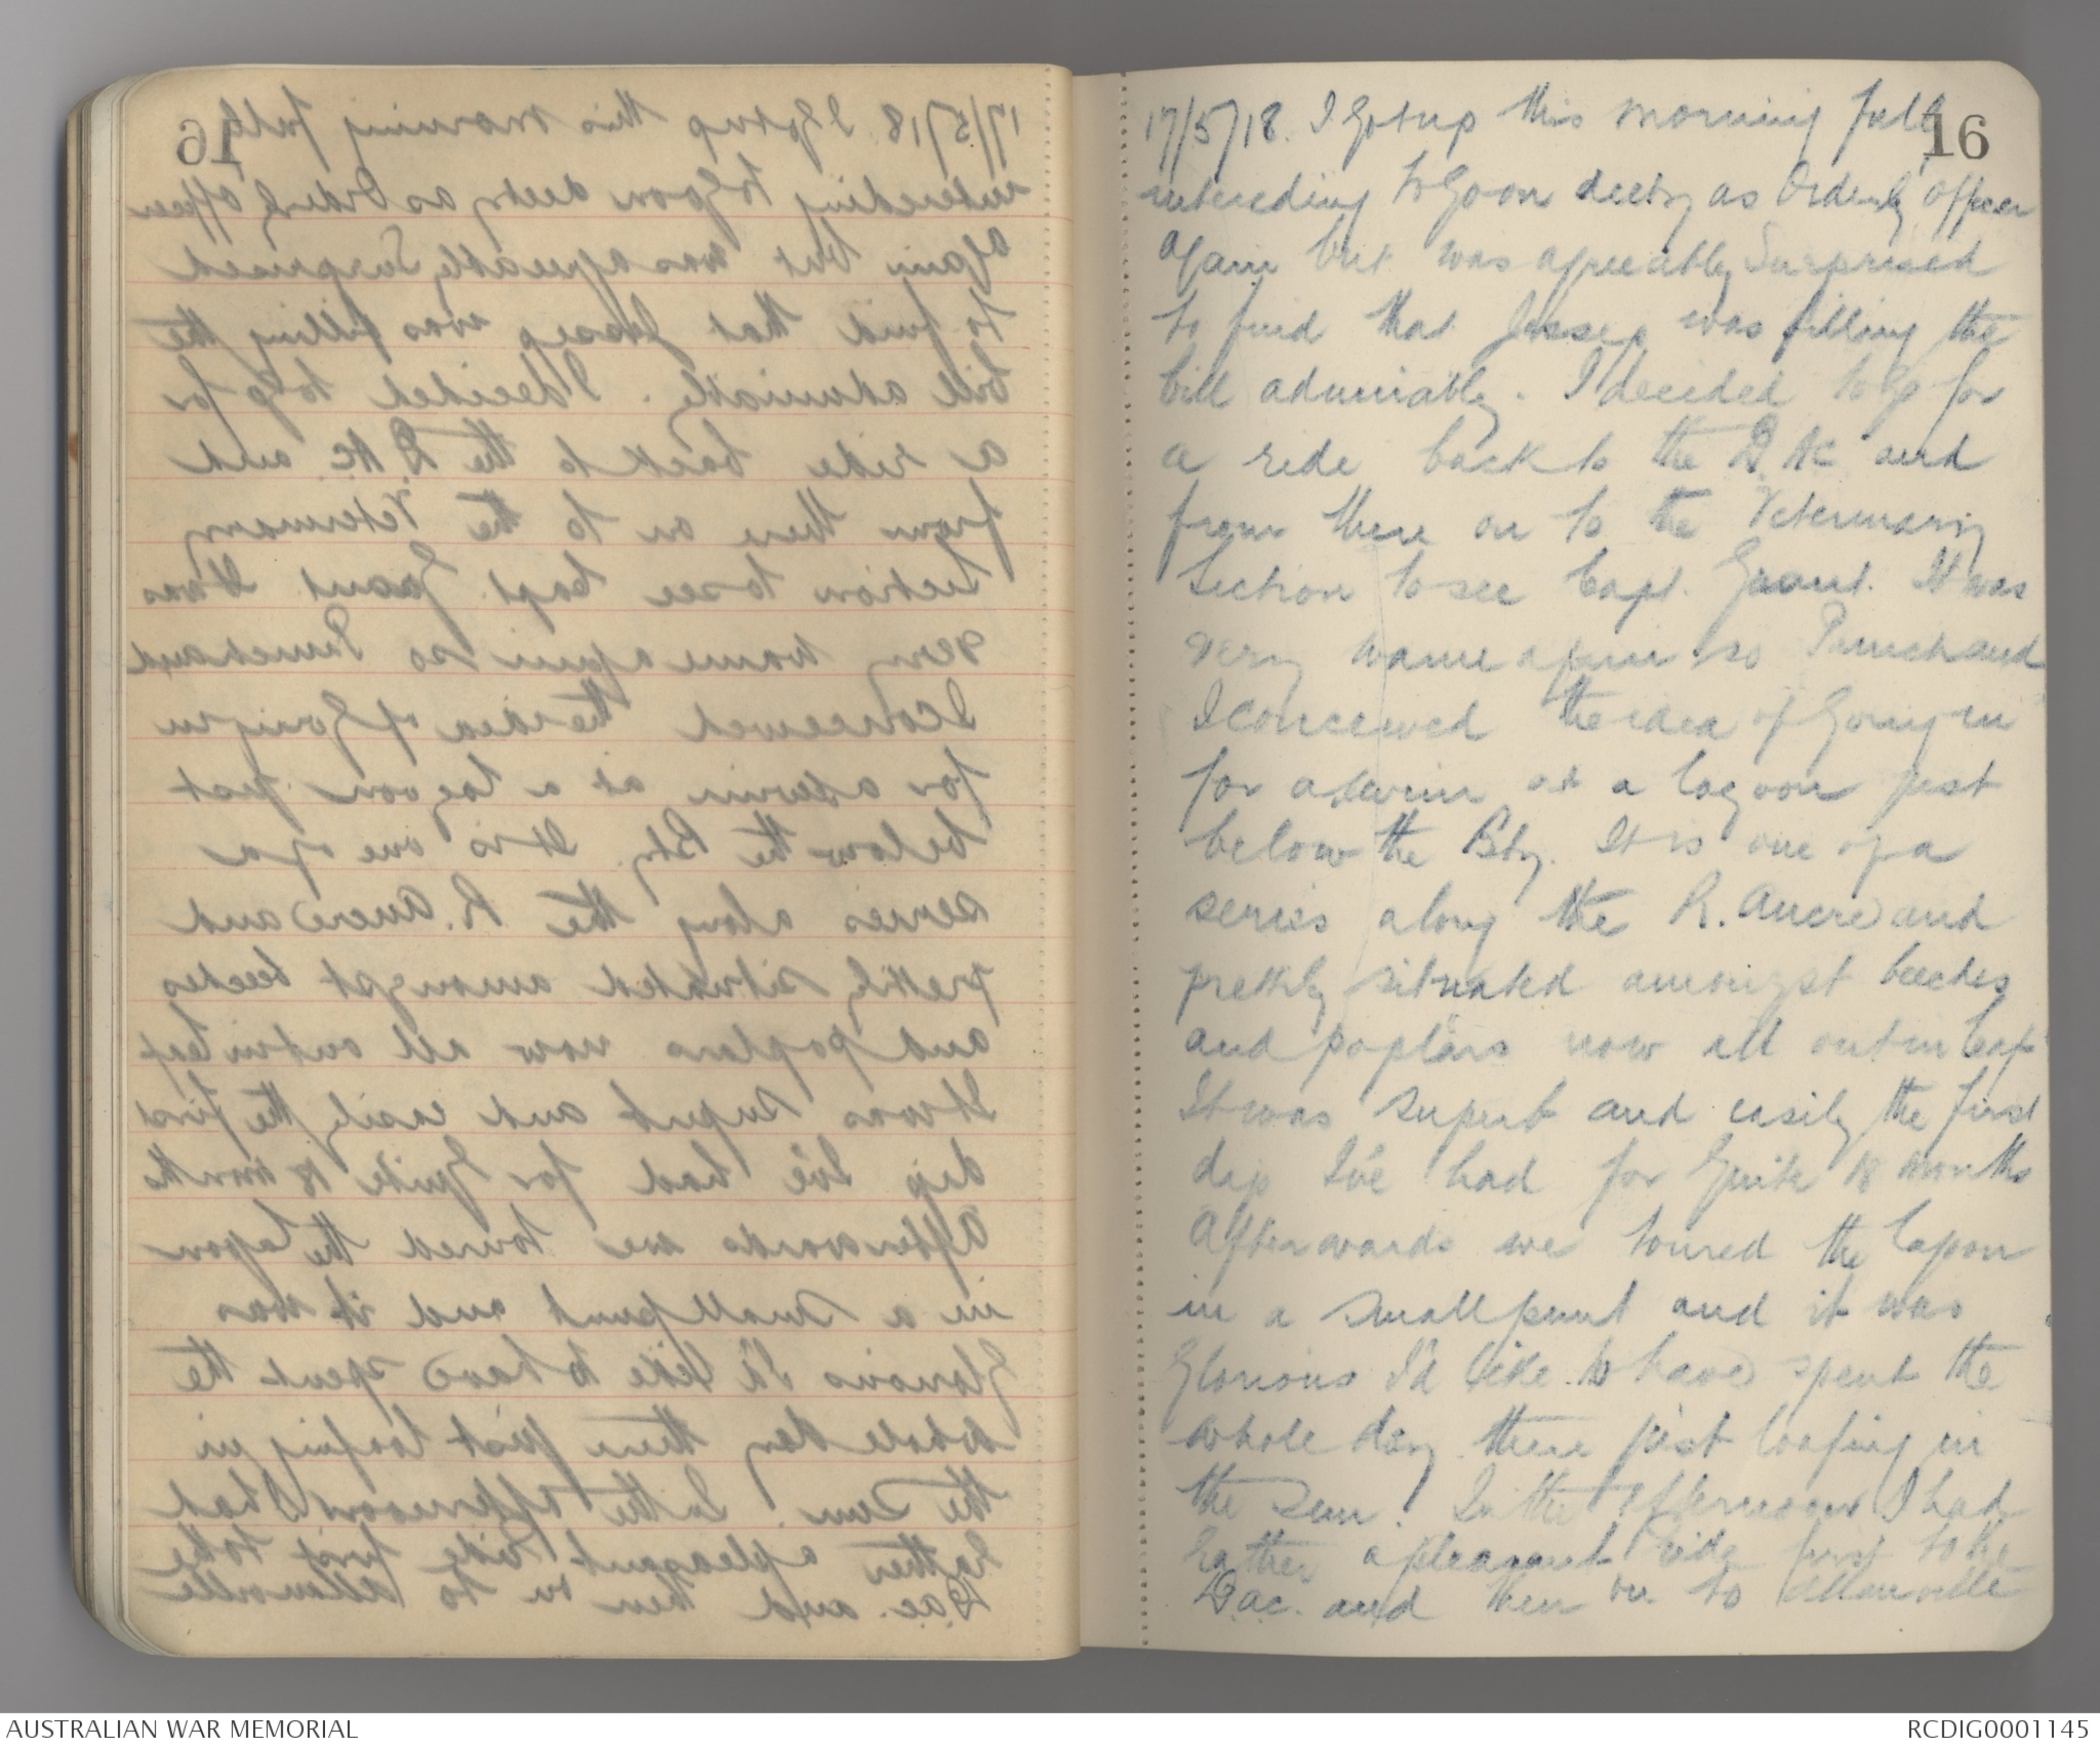 16
17/5/18. I Got up this morning fully
intending to Go on duty as Orderly Officer
again but was agreeably Surprised
to find that Jessep was filling the
bill admirably. I decided to go for
a ride back to the D.A.C. and
from there on to the Veterinary
Section to see Capt. Grant. It was
very warm again so Punch and
I conceived the idea of Going in
for a swim at a lagoon just
below the Bty. It is one of a
series along the R. Ancre and
prettily situated amongst beeches
and poplars now all out in leaf
It was superb and easily the first
dip I've had for Quite 18 months
Afterwards we toured the lagoon
in a small punt and it was
Glorious I'd like to have spent the
whole day there just loafing in
the sun. In the afternoon I had
rather a pleasant ride first to the
D.a.c. and then on to Allonville
AUSTRALIAN WAR MEMORIAL
RCDIG0001145